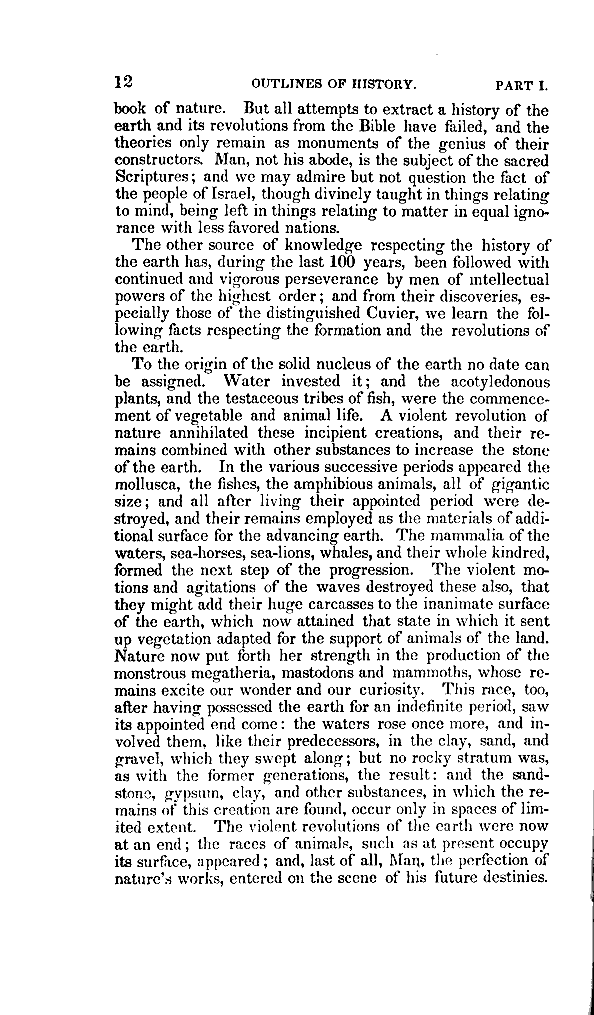 12 OUTLINES OF HISTORY. PART I.
book of nature. But all attempts to extract a history of the
earth and its revolutions from the Bible have failed, and the
theories only remain as monuments of the genius of their
constructors. Man, not his abode, is the subject of the sacred
Scriptures; and we may admire but not question the fact of
the people of Israel, though divinely taught in things relating
to mind, being left in things relating to matter in equal igno-
rance with less favored nations.
The other source of knowledge respecting the history of
the earth has, during the last 100 years, been followed with
continued and vigorous perseverance by men of intellectual
powers of the highest order; and from their discoveries, es-
pecially those of the distinguished Cuvier, we learn the fol-
lowing facts respecting the formation and the revolutions of
the earth.
To the origin of the solid nucleus of the earth no date can
be assigned. Water invested it; and the acotyledonous
plants, and the testaceous tribes of fish, were the commence-
ment of vegetable and animal life. A violent revolution of
nature annihilated these incipient creations, and their re-
mains combined with other substances to increase the stone
of the earth. In the various successive periods appeared the
mollusca, the fishes, the amphibious animals, all of gigantic
size; and all after living their appointed period were de-
stroyed, and their remains employed as the materials of addi-
tional surface for the advancing earth. The mammalia of the
waters, sea-horses, sea-lions, whales, and their whole kindred,
formed the next step of the progression. The violent mo-
tions and agitations of the waves destroyed these also, that
they might add their huge carcasses to the inanimate surface
of the earth, which now attained that state in which it sent
up vegetation adapted for the support of animals of the land.
Nature now put forth her strength in the production of the
monstrous megatheria, mastodons and mammoths, whose re-
mains excite our wonder and our curiosity. This race, too,
after having possessed the earth for an indefinite period, saw
its appointed end come: the waters rose once more, and in-
volved them, like their predecessors, in the clay, sand, and
gravel, which they swept along; but no rocky stratum was,
as with the former generations, the result: and the sand-
stone, gypsum, clay, and other substances, in which the re-
mains of this creation are found, occur only in spaces of lim-
ited extent. The violent revolutions of the earth were now
at an end; the races of animals, such as at present occupy
its surface, appeared; and, last of all, Man, the perfection of
nature's works, entered on the scene of his future destinies.